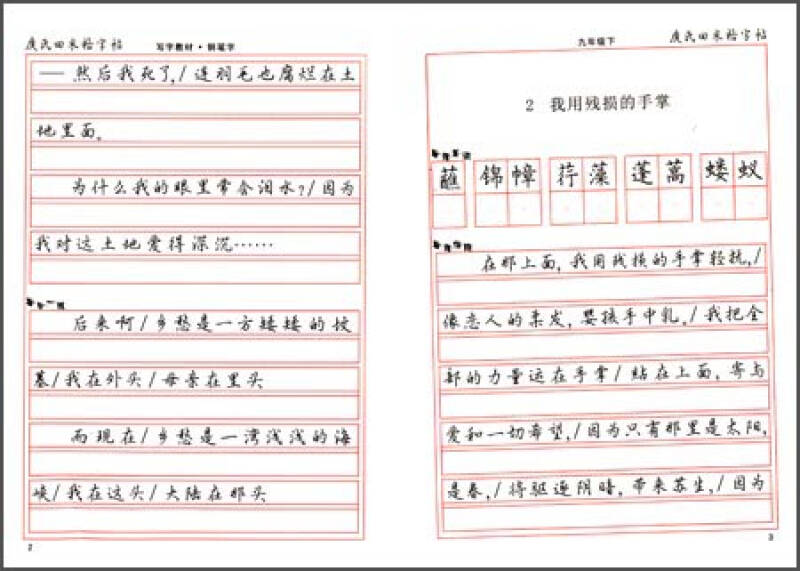 庞氏田米格字帖
写字教材·钢笔字
—— 然后我死了,/连羽毛也腐烂在土
地里面。
为什么我的眼里常含泪水?/因为
我对这土地爱得深沉……
后来啊/乡愁是一方矮矮的坟
墓/我在外头/母亲在里头
而现在/乡愁是一湾浅浅的海
峡/我在这头/大陆在那头
2
九年级下
庞氏田米格字帖
2 我用残损的手掌
蘸 锦幛 荇藻 蓬蒿 蝼蚁
在那上面,我用残损的手掌轻抚,/
像恋人的柔发,婴孩手中乳。/我把全
部的力量运在手掌/贴在上面,寄与
爱和一切希望,/因为只有那里是太阳,
是春,/将驱逐阴暗,带来苏生,/因为
3